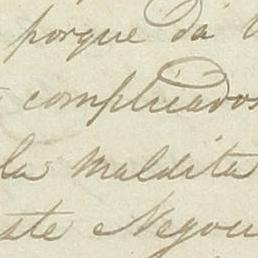 porque da
complicados
la maldita
ste Negoci